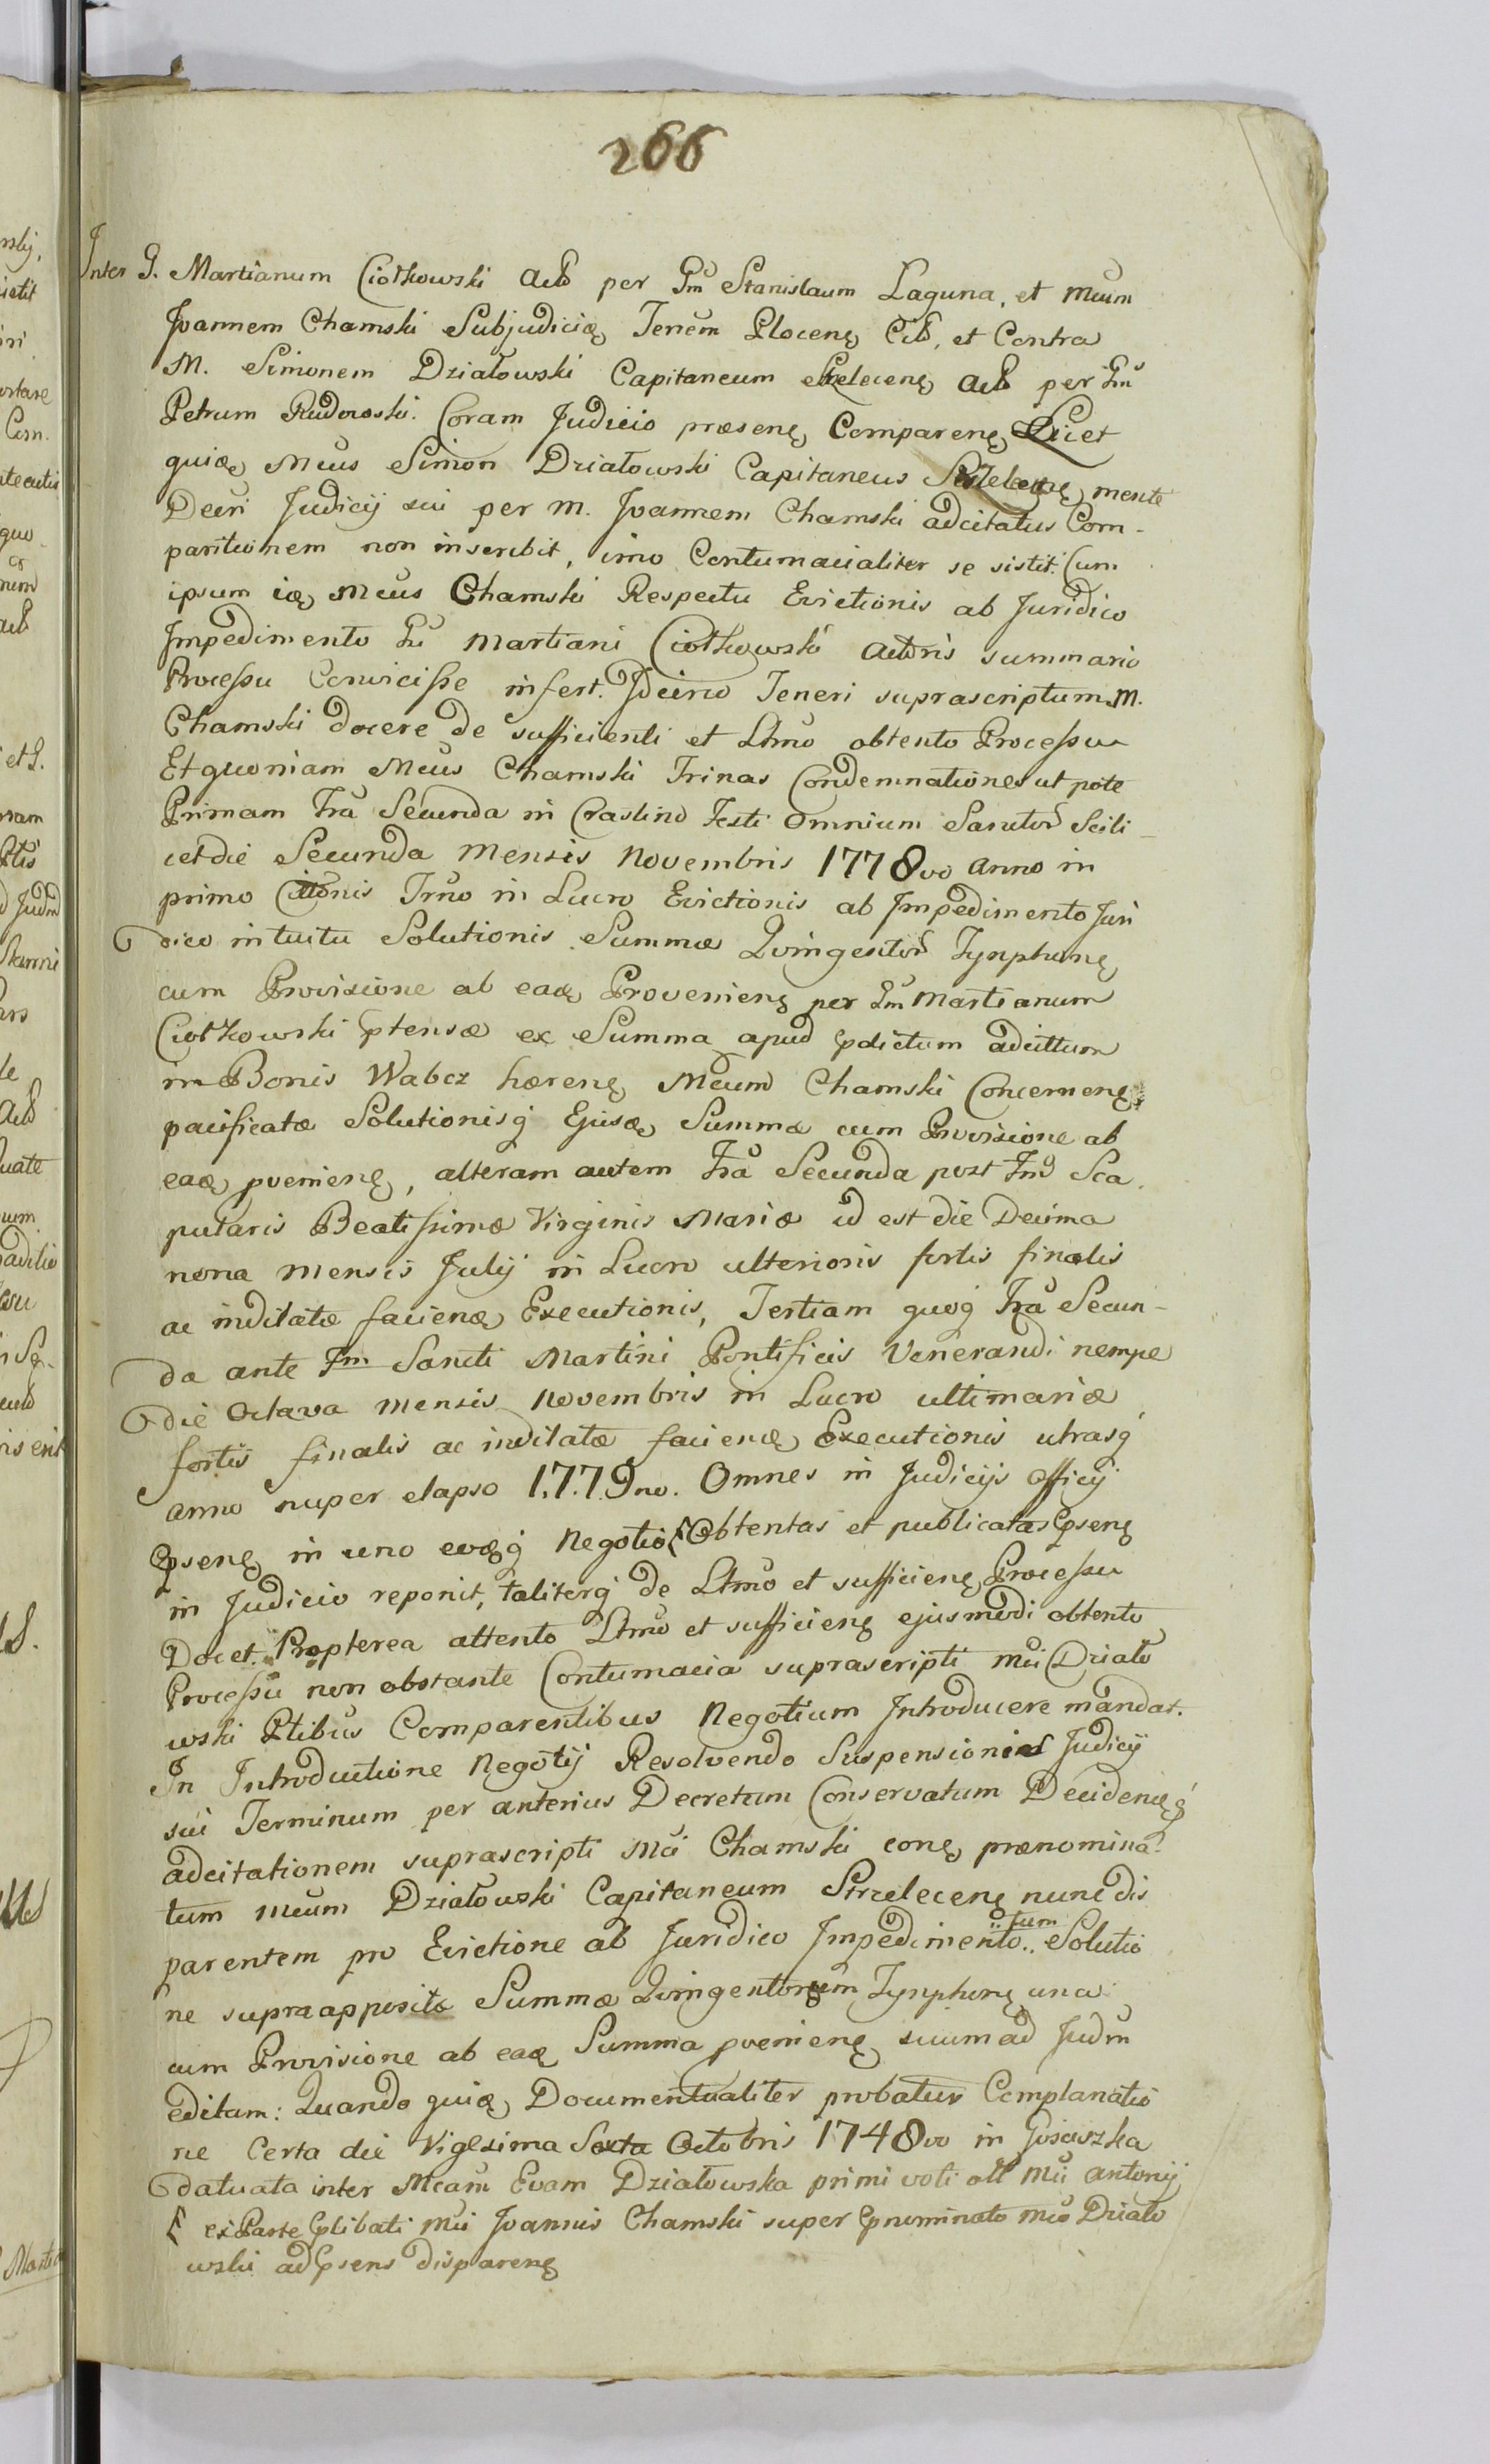 266
Inter G. Martianum Ciołkowski Actō per Gm̄ Stanislaum Laguna, et Mcum
Joannem Chamski Subjudicią Teneīn Plocenę Citō, et Contra
M. Simonem Działowski Capitaneum Strzelecenę Actō per Gm̄
Petrum Rudowski. Coram Judicio præsenę Comparenę Licet
quidę Mcus Simon Działowski Capitaneus mente
Decri Judicij sui per M. Joannem Chamski adcitatus Com-
paritionem non inscribit, imo Contumacialiter se sistit. Cum
ipsum ią Mcus Chamski Respectu Evictionis ab Juridico
Impedimento Gi Martiani Ciołkowski Actōris summario
Processu Convicisse infert. Idcirco Teneri suprascriptum M.
Chamski docere de sufficienti et Ltmo obtento Processu
Et quoniam Mcus Chamski Trinas Condemnationes ut pote
Primam Fra Secunda in Crastino Festi Omnium Sanctor Scili-
cet die Secunda Mensis Novembris 1778vo anno in
primo Citōnis Trno in Lucro Evictionis ab Impedimento Juri
dico intuitu Solutionis Summæ Quingentor Tynphonę
cum Provisione ab eadę Provenienę per Gm Martianum
Ciołkowski ptensæ ex Summa apud pdictum adcittum
in Bonis Wabcz hærenę Mcum Chamski Concernenę,
pacificatæ Solutionisq Ejusdę Summæ cum Provisione ab
eadę pvenienę, alteram autem Fra Secunda post Fm Sca
pularis Beatissimæ Virginis Mariæ id est die Decima
nona Mensis Julij in Lucro ulterioris fortis finalis
ac indilatæ faciendę Executionis, Tertiam quoq Fra Secun-
da ante Fm Sancti Martini Pontificis Venerandi nempe
die Octava Mensis Novembris in Lucro ultimariæ
fortis finalis ac indilatæ faciendę Executionis utrasq
anno nuper elapso 1.7.7.9no. Omnes in Judicijs Officij
psenę in uno eodęq Negotio Obtentas et publicatas psenę
in Judicio reponit, taliterq de Ltmo et sufficienę Processu
Docet. Propterea attento Ltmo et sufficienę ejusmodi obtento
Processu non obstante Contumacia suprascripti Mci Działo
wski Ptibus Comparentibus Negotium Introducere mandat.
In Introductione Negotij Resolvendo Suspensionis Judicij
sui Terminum per anterius Decretum Conservatum Decidendęq
adcitationem suprascripti Mci Chamski conę prænomina
tum Mcum Działowski Capitaneum Strzelecenę nunc dis
parentem pro Evictione ab Juridico Impedimento .. tum Solutio
ne supra apposita Summæ Quingentorum Tynphonę una
cum Provisione ab eadę Summa pvenienę suum ad Judm
editam: Quando quidę Documentualiter probatur Complanatio
ne Certa die Vigesima Sexta Octobris 1748vo in
datuata inter Mcam Evam Działowska primi voti olt Mci Antonij
ex Parte plibati Mci Joannis Chamski super pnominato Mco Działo
wski ad psens disparenę